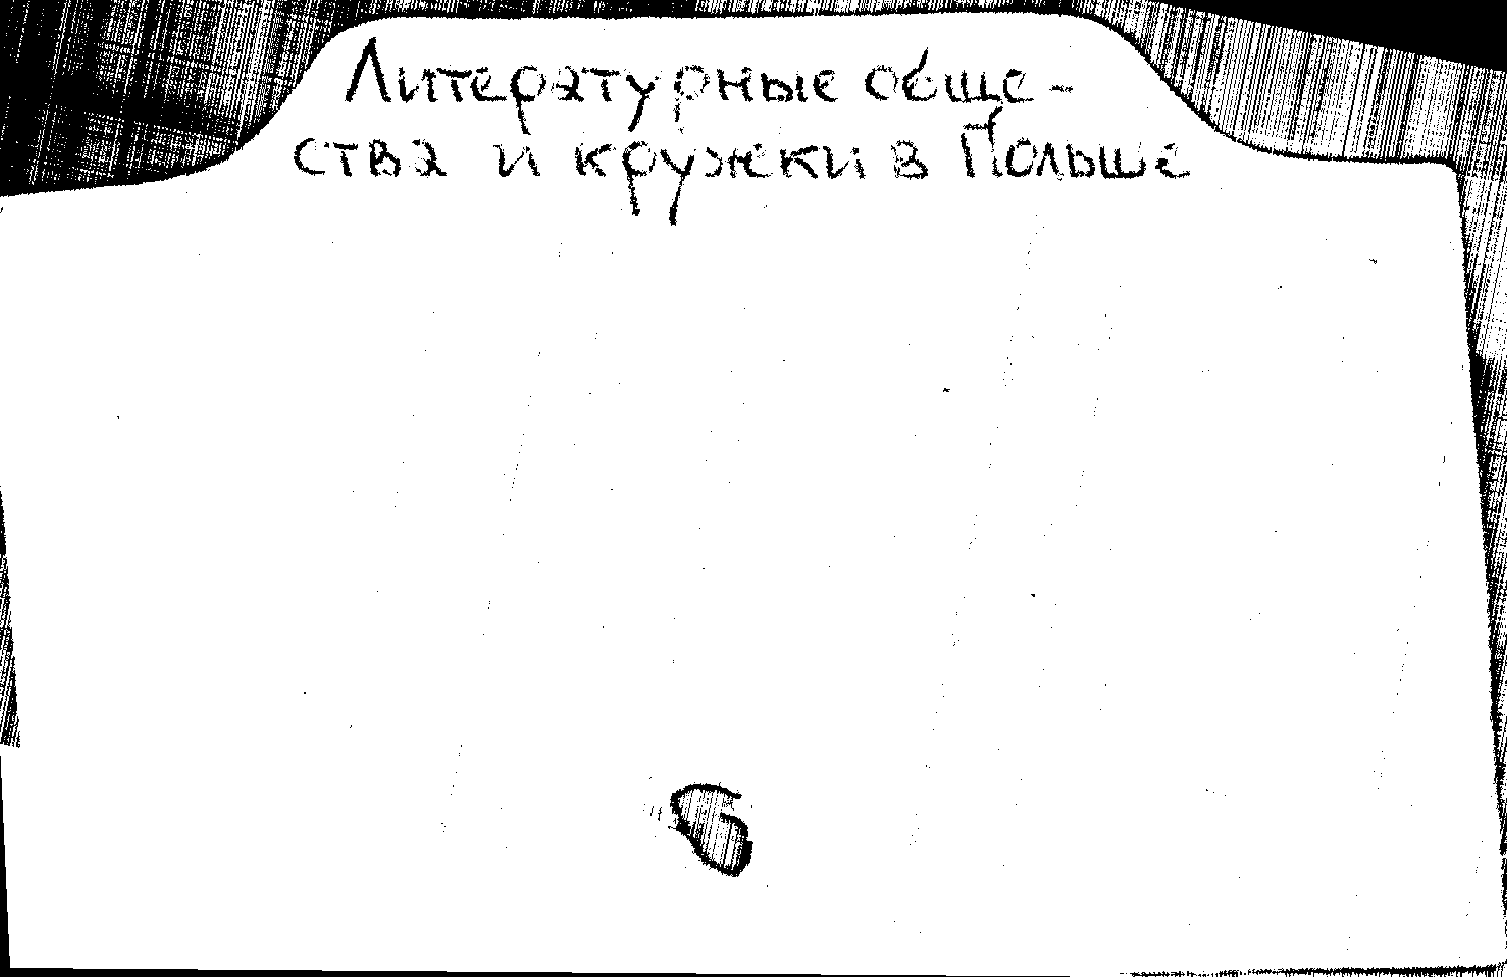 Литературные обще-
ства и кружки в Польше